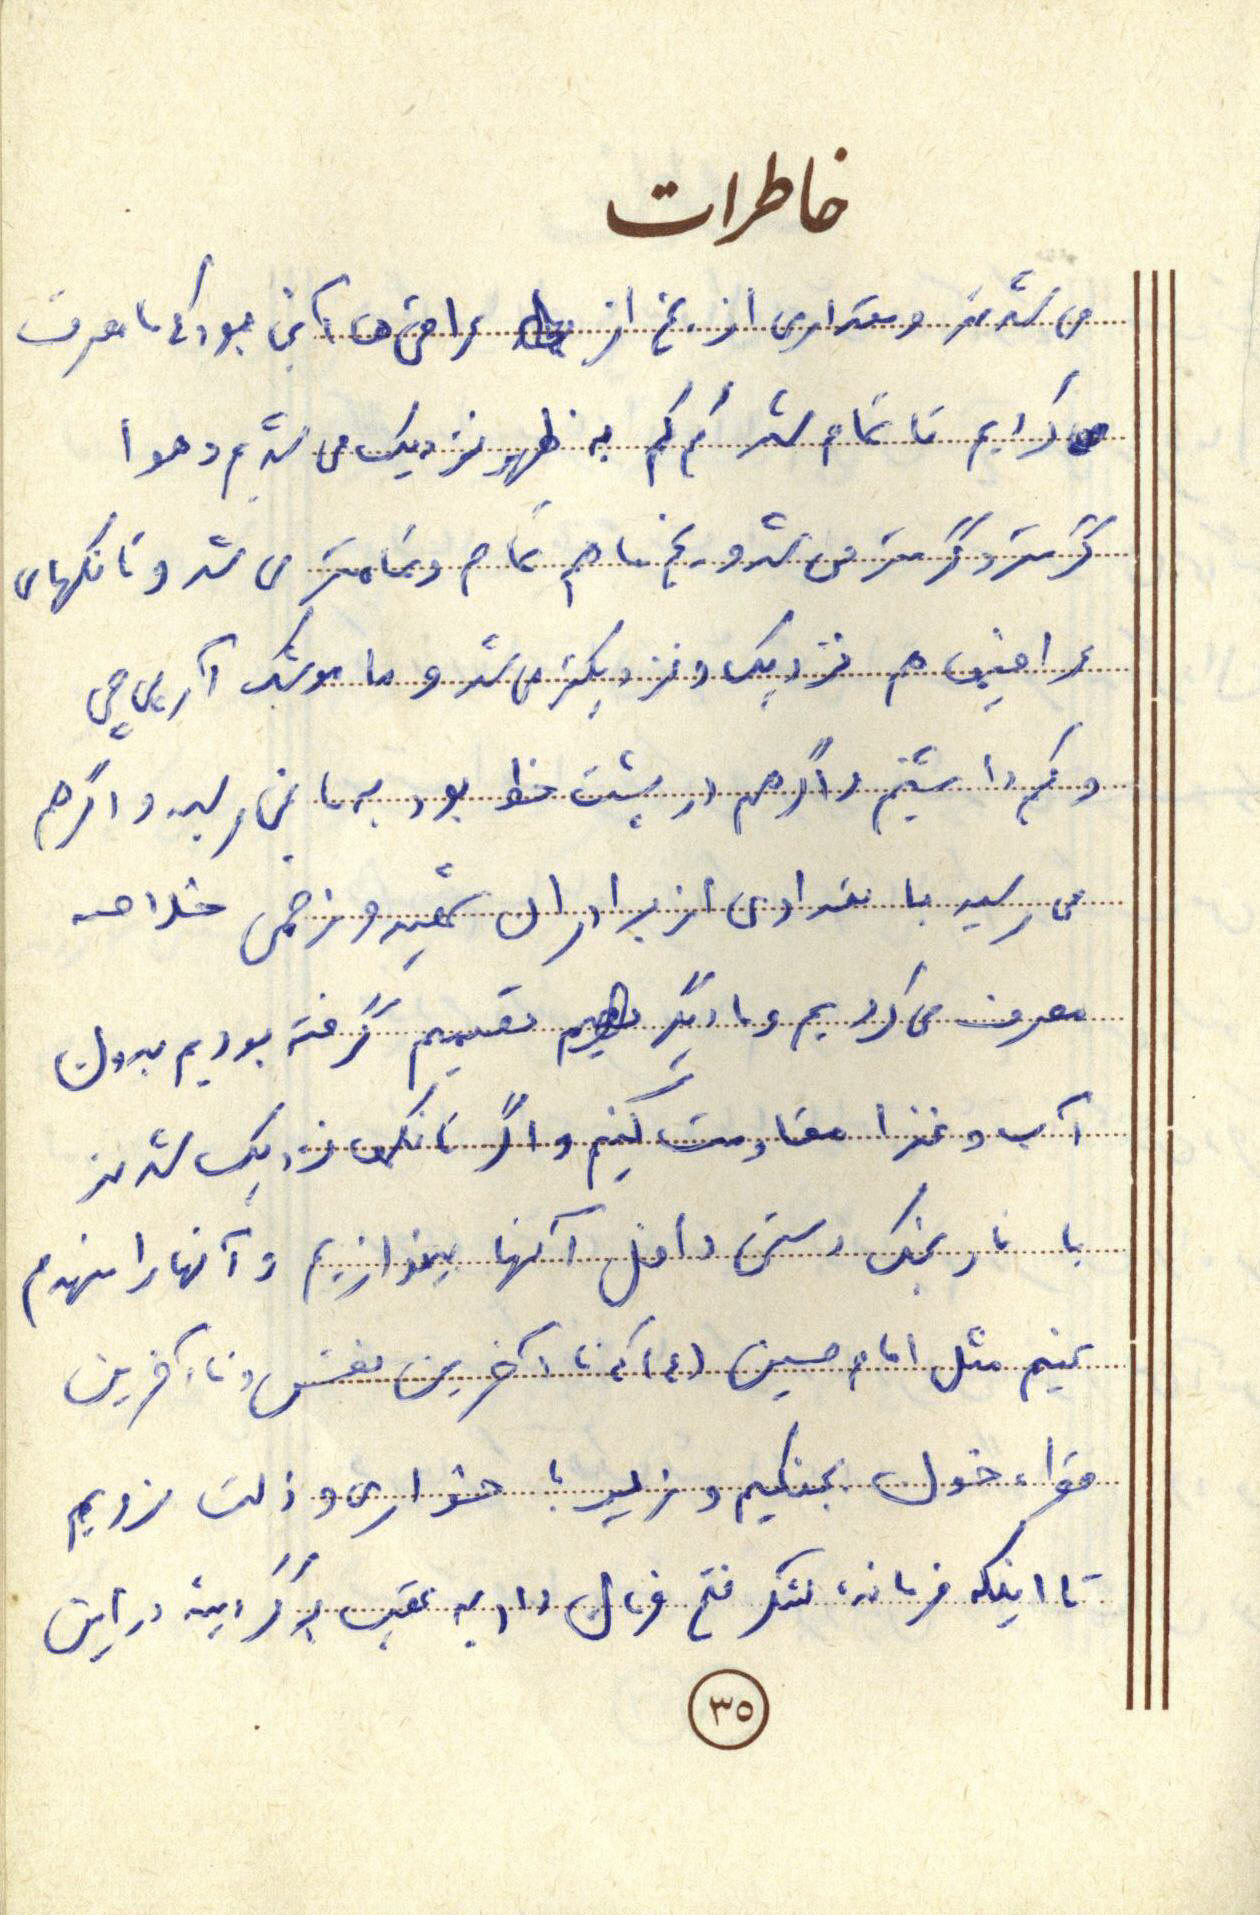 خاطرات
می شدند و مقداری از یخ از عراقی ها باقی بود که ما مصرف
می کردیم تا تمام شد کم کم به ظهر نزدیک می شدیم و هوا
گرمتر و گرمتر می شد و یخ ما هم تمام و تمامتر می شد و تانکهای
عراقیها هم نزدیک و نزدیکتر می شد و ما موشک آرپی جی
و کم داشتیم و اگر هم در پشت خط بود به ما نمی رسید و اگر هم
می رسید با تعدادی از برادران شهید و زخمی خلاصه
مصرف می کردیم و ما دیگر تصمیم گرفته بودیم بدون
آب و غذا مقاومت کنیم و اگر تانکها نزدیک شدند
با نارنجک دستی داخل آنها بیندازیم و آنها را منهدم
کنیم مثل امام حسین (ع) که تا آخرین نفس و تا آخرین
قطره خون بجنگیم و زیر بار خواری و ذلت نرویم
تا اینکه فرمانده لشکر فتح فرمان داد به عقب برگردید در این
٣٥